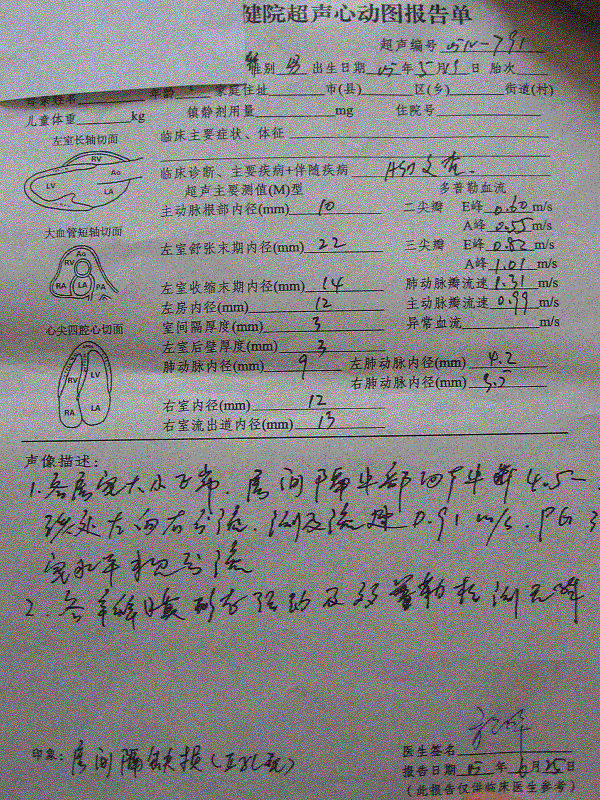 健院超声心动图报告单
超声编号
性别 男 出生日期 05 年 5 月 9 日 胎次
母亲姓名 年龄 家庭住址 市(县) 区(乡) 街道(村)
儿童体重 kg 镇静剂用量 mg 住院号
左室长轴切面
临床主要症状、体征
RV
Ao
LV
LA
临床诊断、主要疾病+伴随疾病 ASD
超声主要测值(M)型 多普勒血流
主动脉根部内径(mm) 10 二尖瓣 E峰 0.60 m/s
A峰 0.55 m/s
大血管短轴切面
左室舒张末期内径(mm) 22 三尖瓣 E峰 0.82 m/s
A峰 1.01 m/s
Ao
RV
RA
LA
PA
左室收缩末期内径(mm) 14 肺动脉瓣流速 1.31 m/s
左房内径(mm) 12 主动脉瓣流速 0.99 m/s
心尖四腔心切面
室间隔厚度(mm) 3 异常血流 m/s
左室后壁厚度(mm) 3
肺动脉内径(mm) 9 左肺动脉内径(mm) 4.2
右肺动脉内径(mm)
RV
LV
RA
LA
右室内径(mm) 12
右室流出道内径(mm) 13
声像描述:
1.各房室大小正常. 房间隔中部回声中断 4.5-
该处左向右分流. 测及流速 0.91 m/s. PG 3
室水平未见分流
2. 各瓣膜
印象: 房间隔缺损
医生签名
报告日期 05 年 6 月 25 日
(此报告仅供临床医生参考)